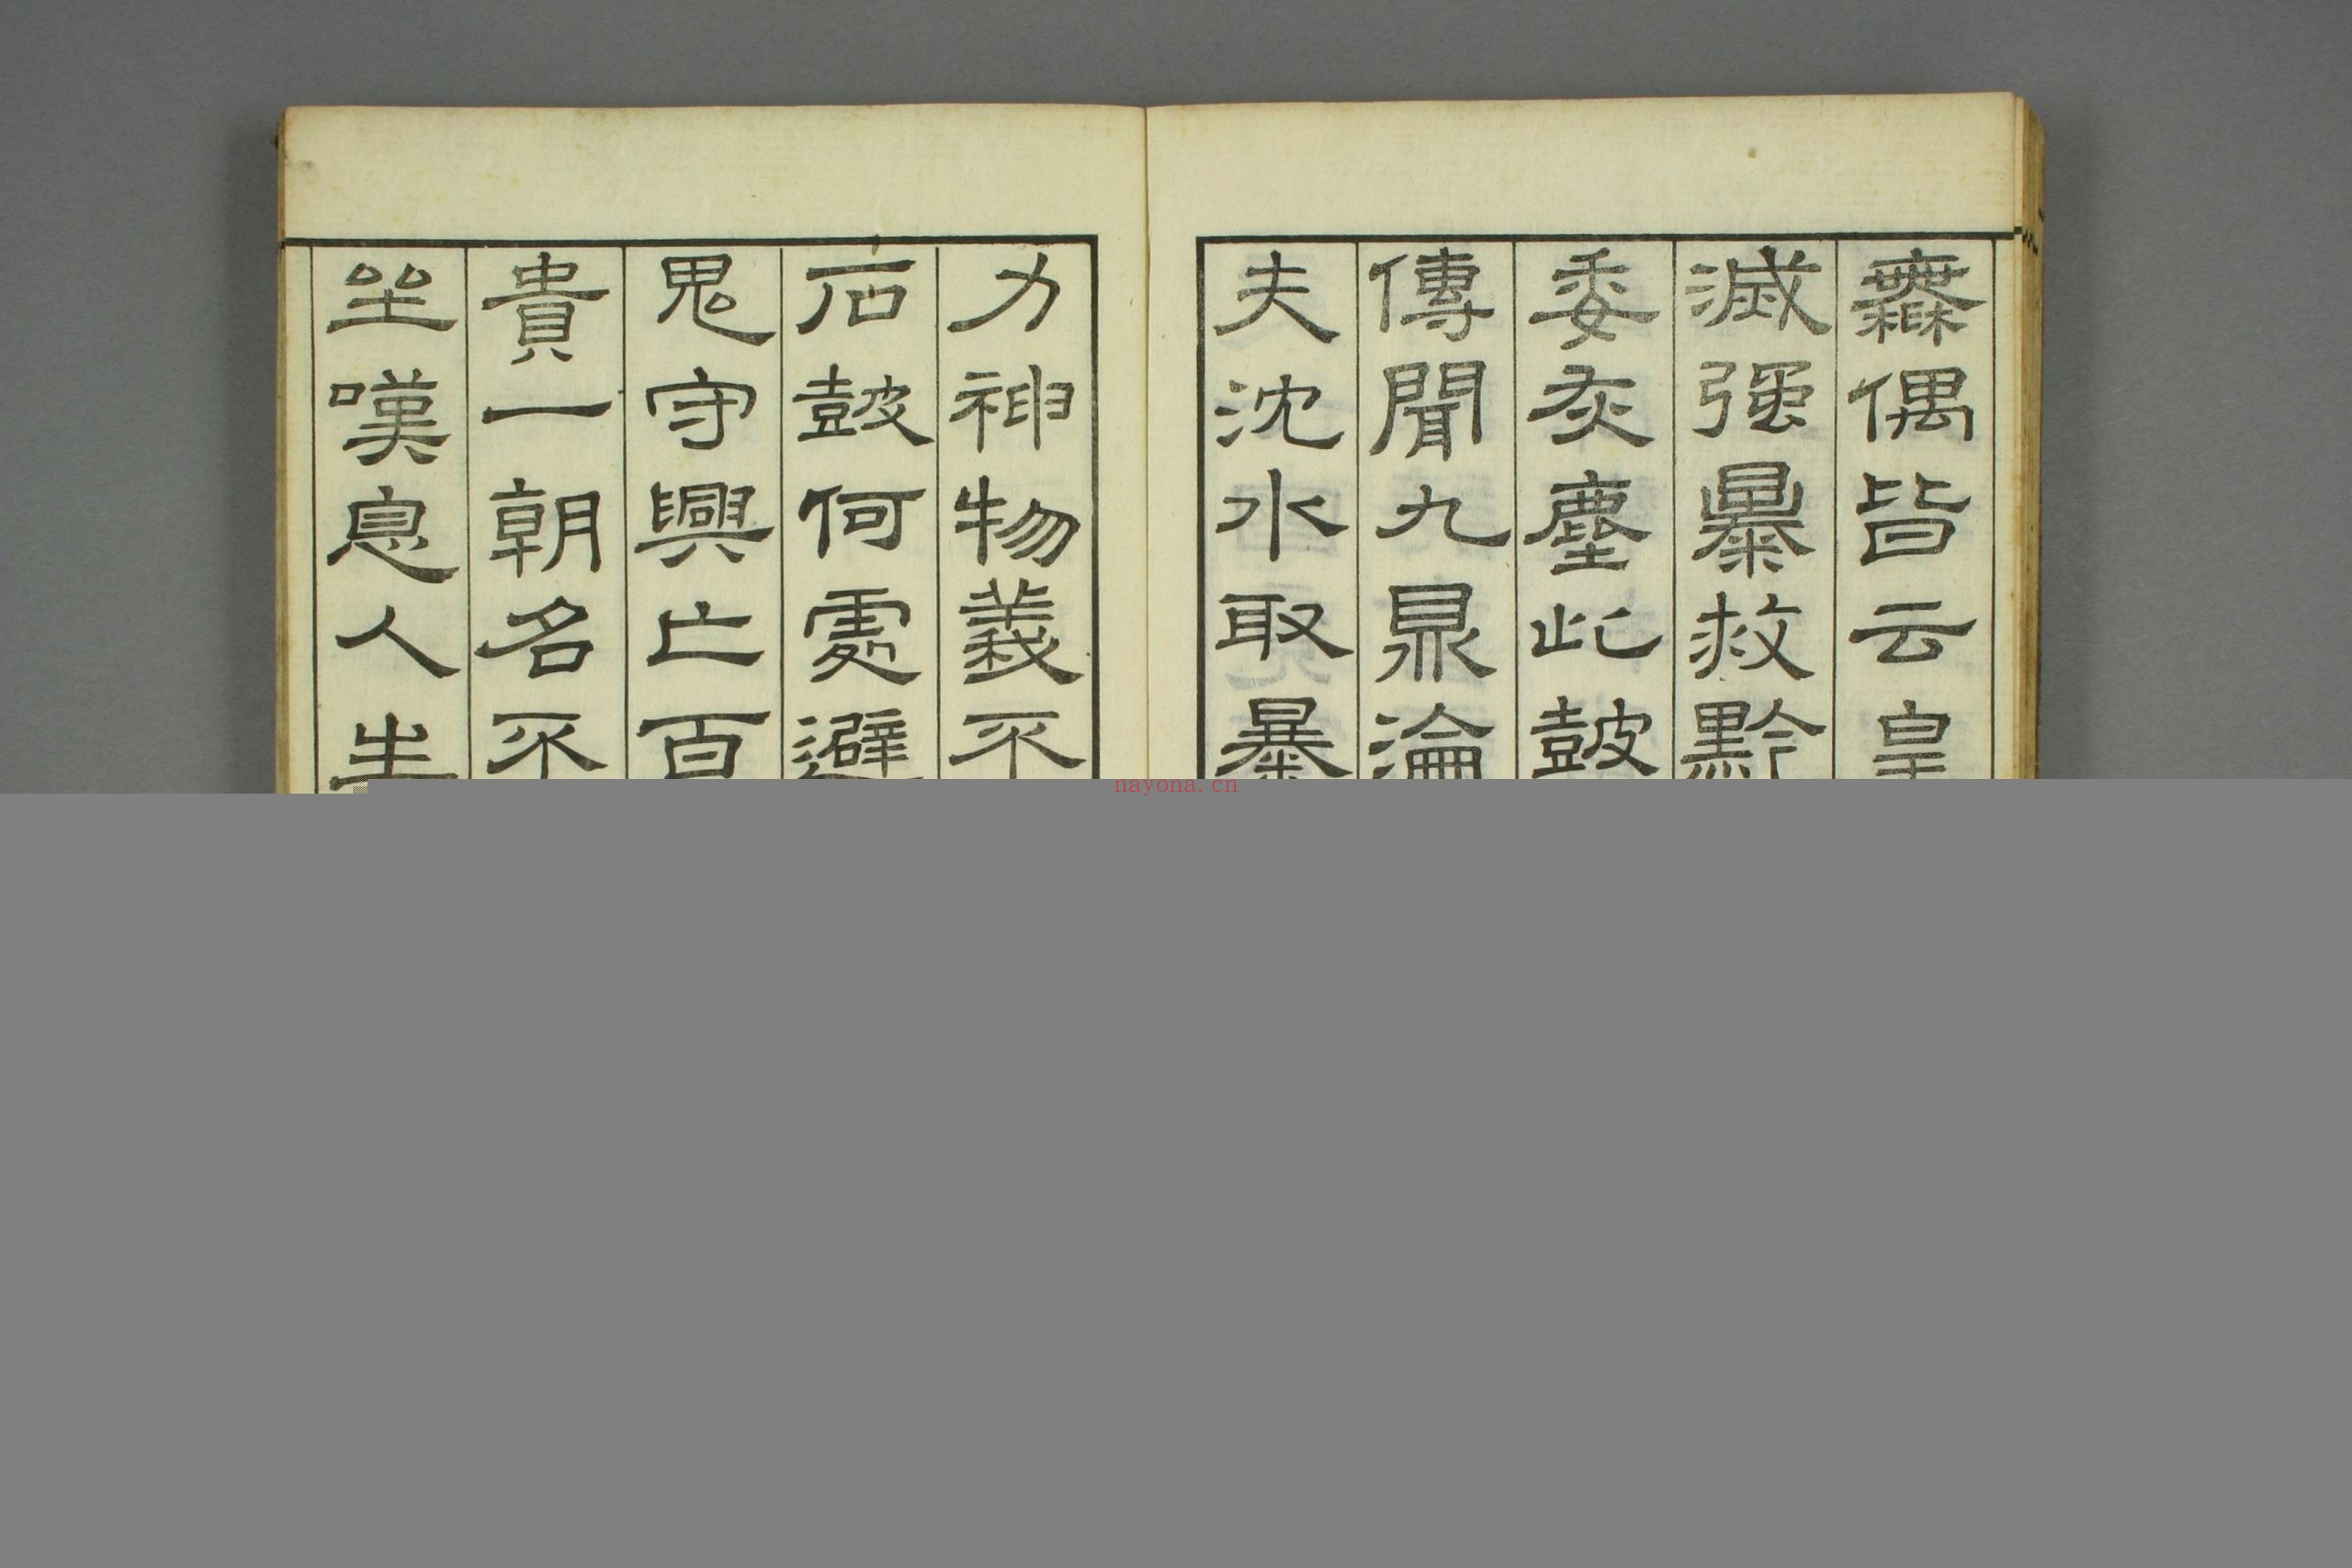 無偶皆云皇
滅强暴救黔
委灰塵此鼓
傳聞九鼎淪
夫沈水取暴
力神物義不
石鼓何處避
鬼守興亡百
貴一朝名不
坐嘆息人生
nayona.cn